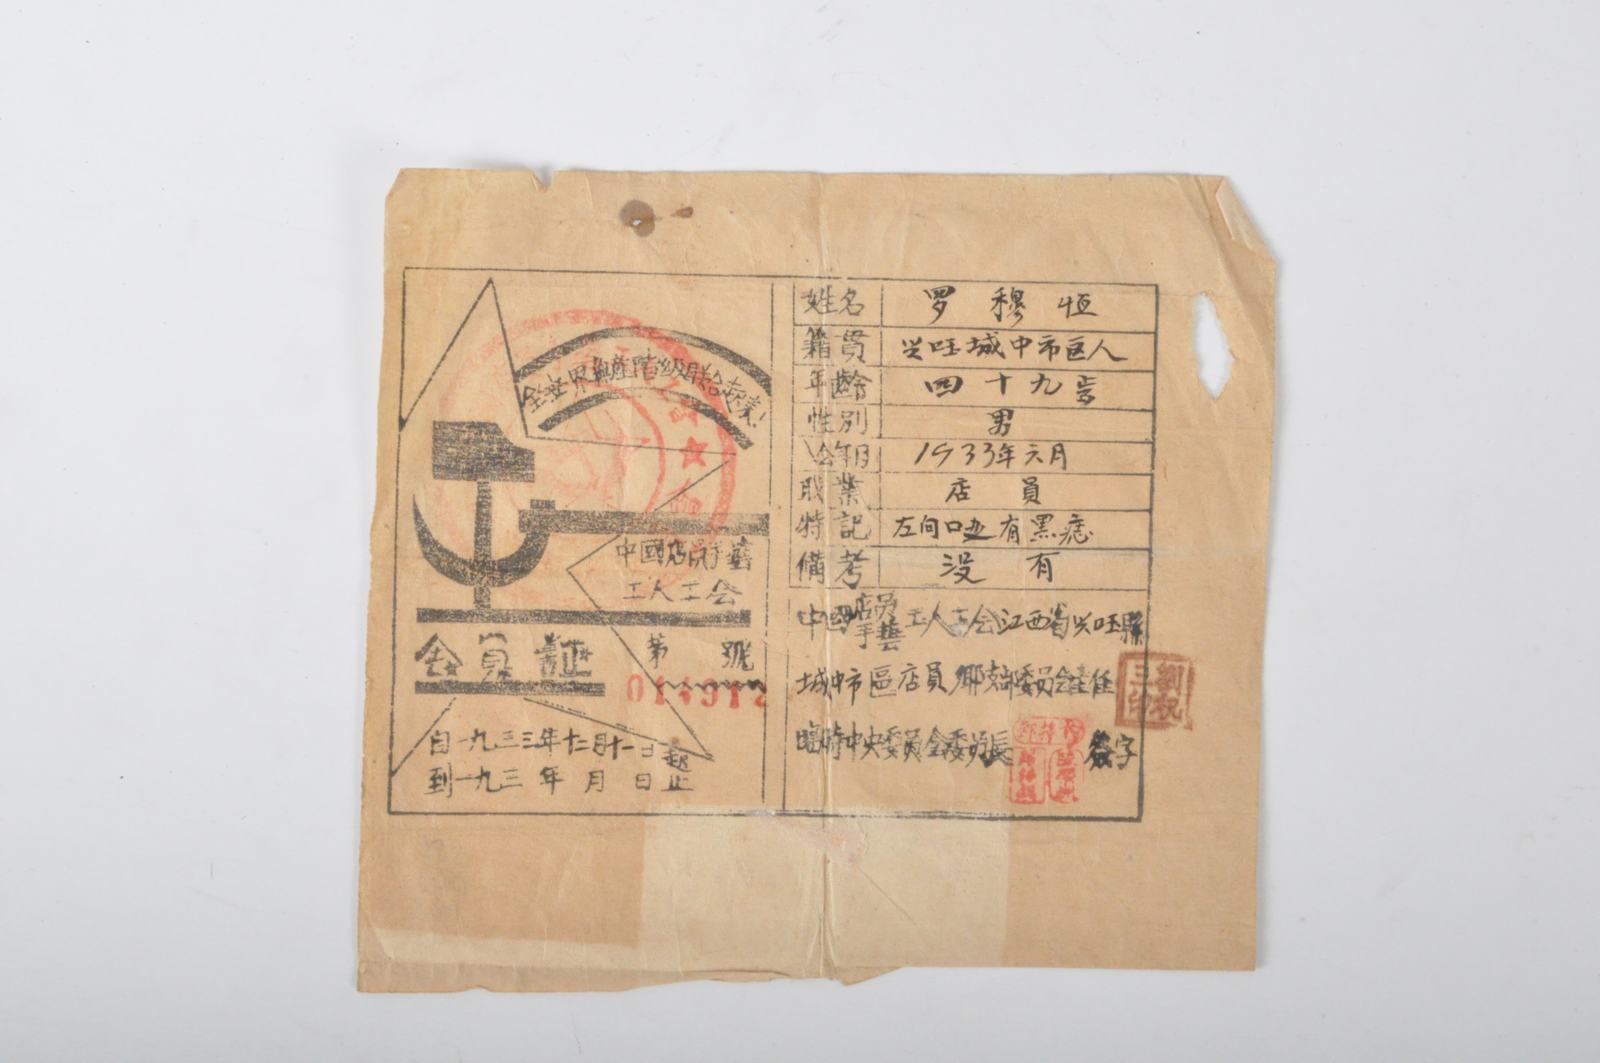 全世界無產階級联合起來!
中國店員手藝
工人工会
会員証 第 號
自一九三三年十二月十一日起
到一九三 年 月 日止
姓名 罗穆恒
籍貫 兴旺城中市区人
年齡 四十九岁
性别 男
入会年月 1933年六月
职業 店員
特記 左间口边有黑痣
備考 没有
中國店員手藝工人工会江西省兴旺縣
城中市區店員鄉支部委员会主任
劉祝三印
臨時中央委員会委员長 签字